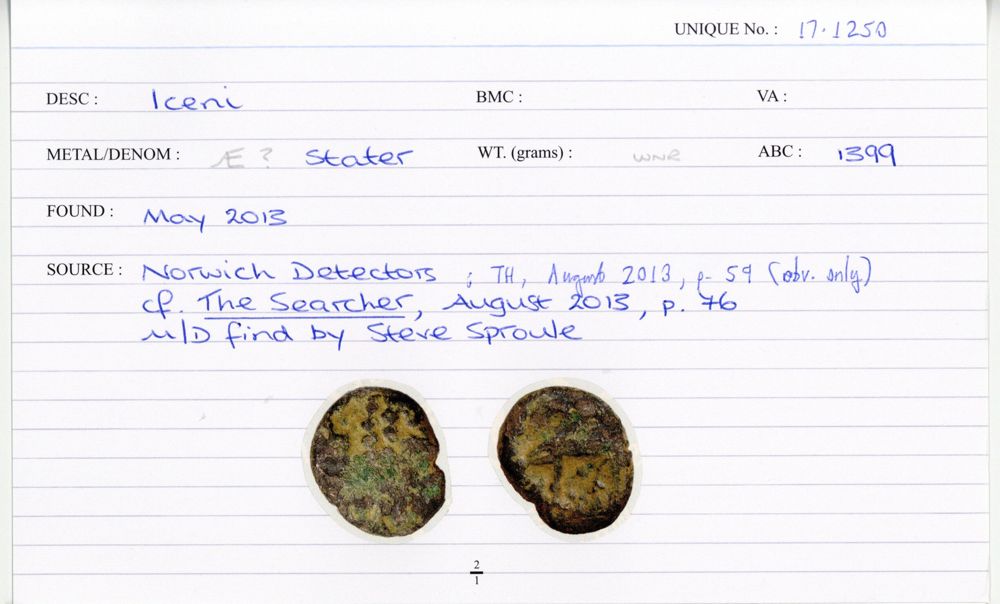 UNIQUE No. : 17.1250
DESC : Iceni BMC : VA :
METAL/DENOM : Æ ? Stater WT. (grams) : WNR ABC : 1399
FOUND : May 2013
SOURCE : Norwich Detectors ; TH, August 2013, p. 59 (obv. only)
cf. The Searcher, August 2013, p. 76
M/D find by Steve Sproule
2
1